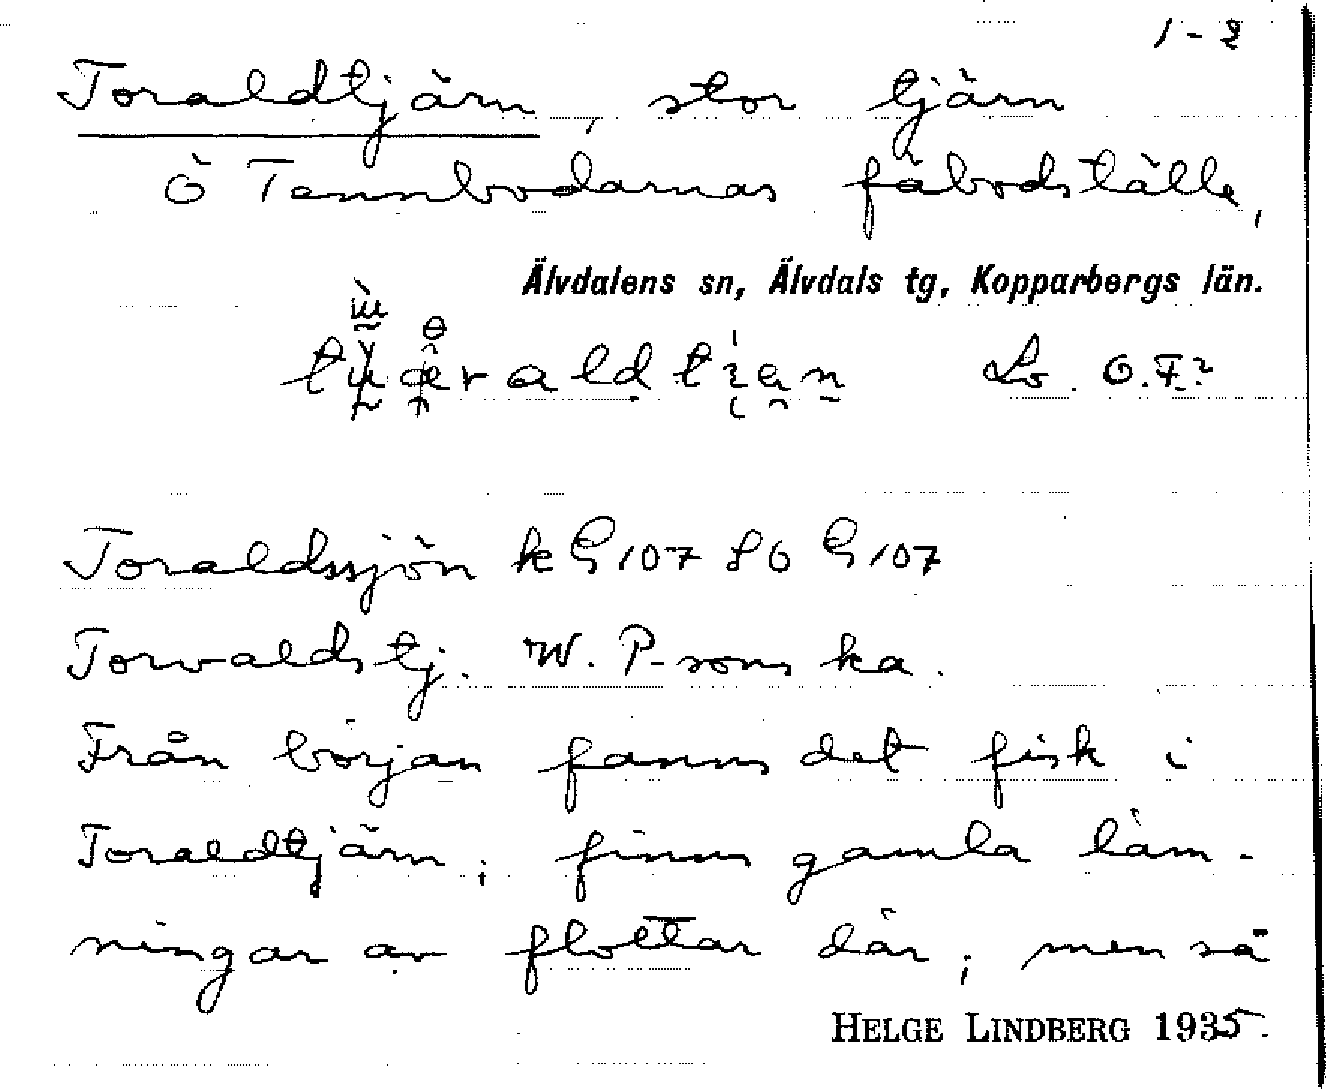 1-2
Toraldtjärn, stor tjärn
ö Tennbodarnas fäbodställe,
Älvdalens sn, Älvdals tg, Kopparbergs län.
Toraldssjön k G 107 SO G 107
Torvaldstj. W. P-sons ka.
Från början fanns det fisk i
Toraldtjärn; finns gamla läm-
ningar av flottar där; men så
HELGE LINDBERG 1935.